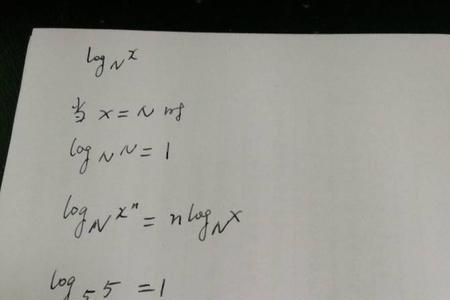 log_N x
当 x = N 时
log_N N = 1
log_N x^n = n log_N x
log_5 5 = 1